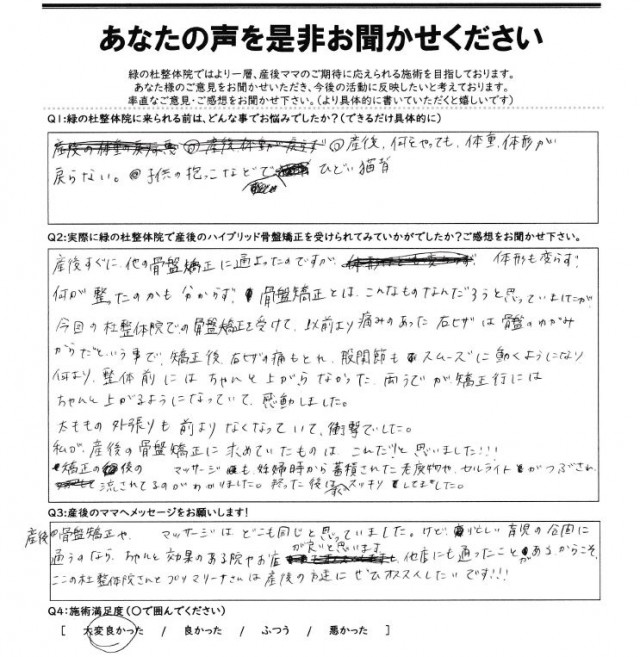 あなたの声を是非お聞かせください
緑の杜整体院ではより一層、産後ママのご期待に応えられる施術を目指しております。
あなた様のご意見をお聞かせいただき、今後の活動に反映したいと考えております。
率直なご意見・ご感想をお聞かせ下さい。(より具体的に書いていただくと嬉しいです)
Q1:緑の杜整体院に来られる前は、どんな事でお悩みでしたか?(できるだけ具体的に)
産後、何をやっても、体重、体形が
戻らない。 子供の抱っこなどで ひどい猫背
Q2:実際に緑の杜整体院で産後のハイブリッド骨盤矯正を受けられてみていかがでしたか?ご感想をお聞かせ下さい。
産後すぐに、他の骨盤矯正に通よったのですが、 体形も変らず
何が整たのかも分からず! 骨盤矯正とは、こんなものなんだろうと思っていましたが、
今回の杜整体院での骨盤矯正を受けて、以前より痛みのあった右ヒザは骨盤のゆがみ
からだという事で、矯正後、右ヒザの痛もとれ、股関節もスムーズに動くようになり
何より、整体前にはちゃんと上がらなかった、両うでが、矯正後には
ちゃんと上がるようになっていて、感動しました。
太ももの外張りも前よりなくなっていて、衝撃でした。
私が、産後の骨盤矯正に求めていたものは、これだ!!と思いました!!!
矯正の後の マッサージも、妊婦時から蓄積された老廃物や、セルライトがつぶされ、
流されてるのがわかりました。終った後は スッキリしてました。
Q3:産後のママへメッセージをお願いします!
産後の骨盤矯正や、 マッサージはどこも同じと思っていました。けど、忙しい育児の合間に
通うのなら、ちゃんと効果のある院やお店が良いと思います 他店にも通ったことがあるからこそ、
ここの杜整体院さんとプリマリーナさんは産後の方達にぜひオススメしたいです!!!
Q4:施術満足度(○で囲んでください)
[ 大変良かった / 良かった / ふつう / 悪かった ]